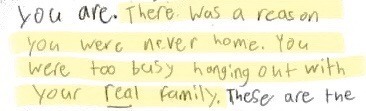 you are. There was a reason
you were never home. You
were too busy hanging out with
your real family. These are the